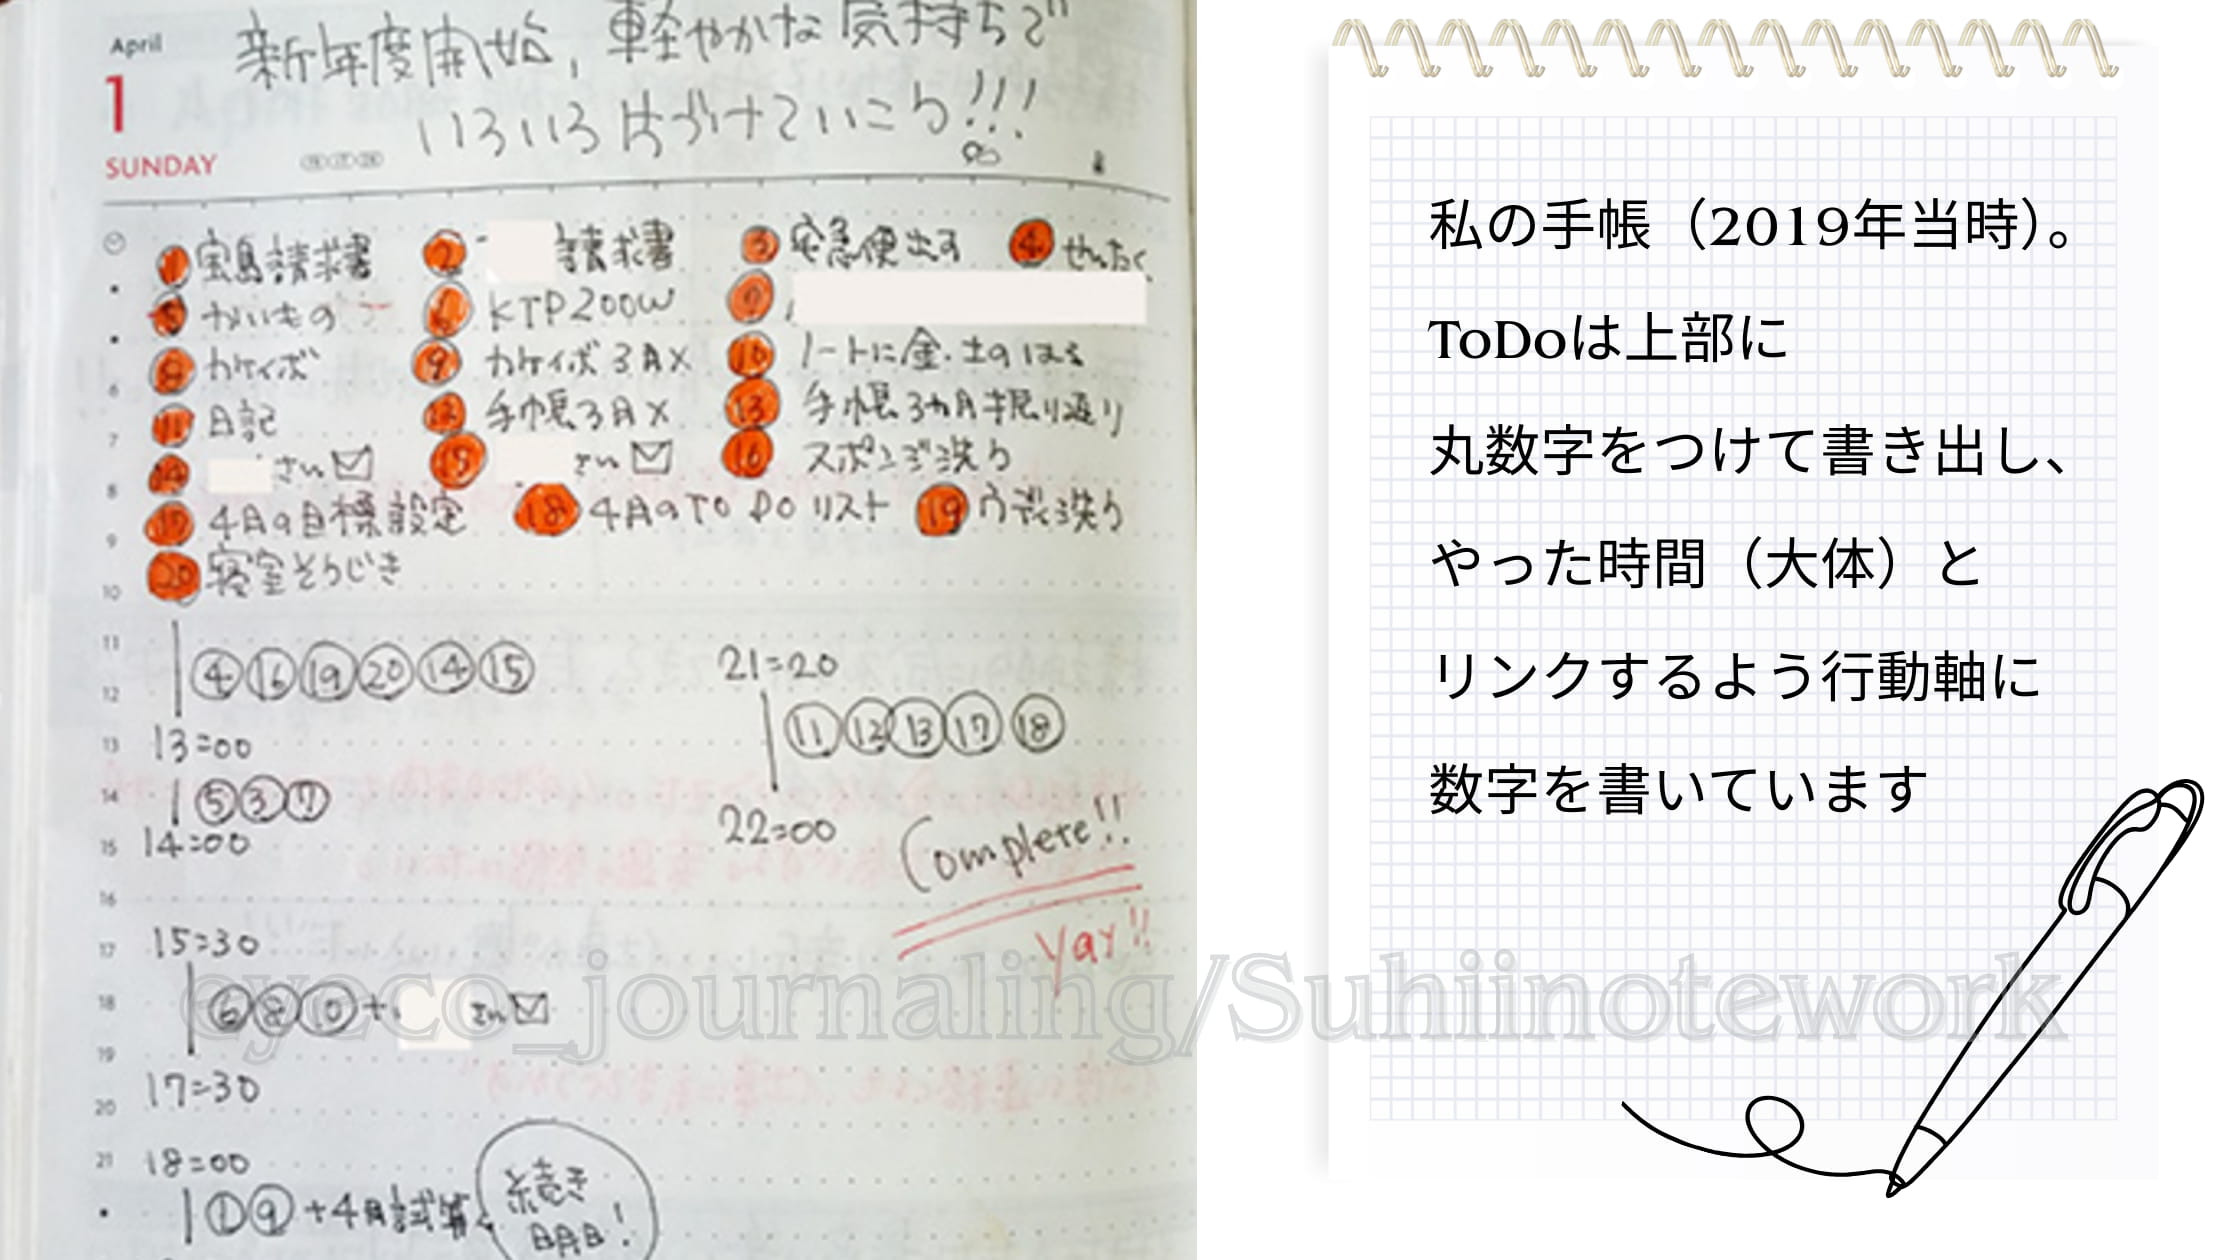 April
新年度開始, 軽やかな気持ちで
1
いろいろ片づけていこう!!!
SUNDAY
① 宝島請求書 ② 請求書 ③ 宅急便出す ④ せんたく
⑤ かいもの ⑥ KTP200W ⑦
⑧ カケイボ ⑨ カケイボ3月〆 ⑩ ノートに金・土のはる
⑪ 日記 ⑫ 手帳3月〆 ⑬ 手帳3ヵ月振り返り
⑭ さん ⑮ さん ⑯ スポンジ洗う
⑰ 4月の目標設定 ⑱ 4月のTO DOリスト ⑲ 洗う
⑳ 寝室そうじき
6
7
8
9
10
11
12
13
14
15
16
17
18
19
20
21
④⑯⑲⑳⑭⑮
13:00
⑤③⑦
14:00
15:30
⑥⑧⑩+ さん
17:30
18:00
①⑨+4月試算
続き
明日!
21:20
⑪⑫⑬⑰⑱
22:00
Complete!!
Yay!!
私の手帳（2019年当時）。
ToDoは上部に
丸数字をつけて書き出し、
やった時間（大体）と
リンクするよう行動軸に
数字を書いています
eyeco_journaling/Suhiinotework